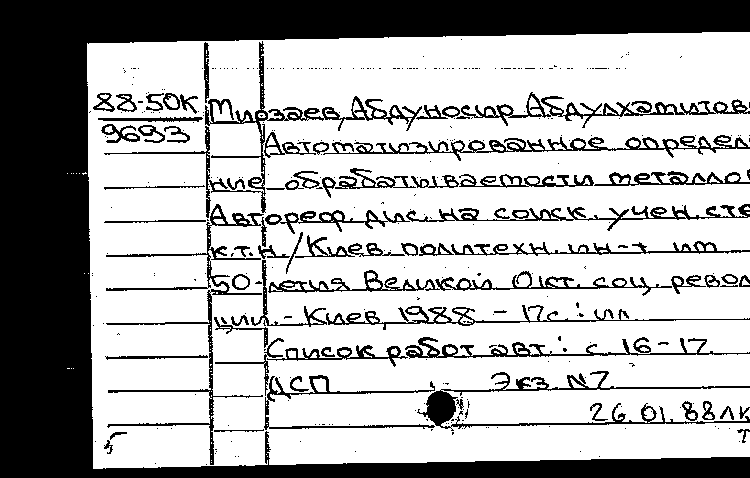 88-50К
9693
Мирзаев, Абдуносир Абдулхамитов
Автоматизированное определ
ние обрабатываемости металлов
Автореф. дис. на соиск. учен. сте
к.т.н. / Киев. политехн. ин-т им
50-летия Великой Окт. соц. револ
ции. - Киев, 1988 - 17с.: ил
Список работ авт.: с. 16-17.
ДСП Экз. N7
26.01.88 лк
5
Т